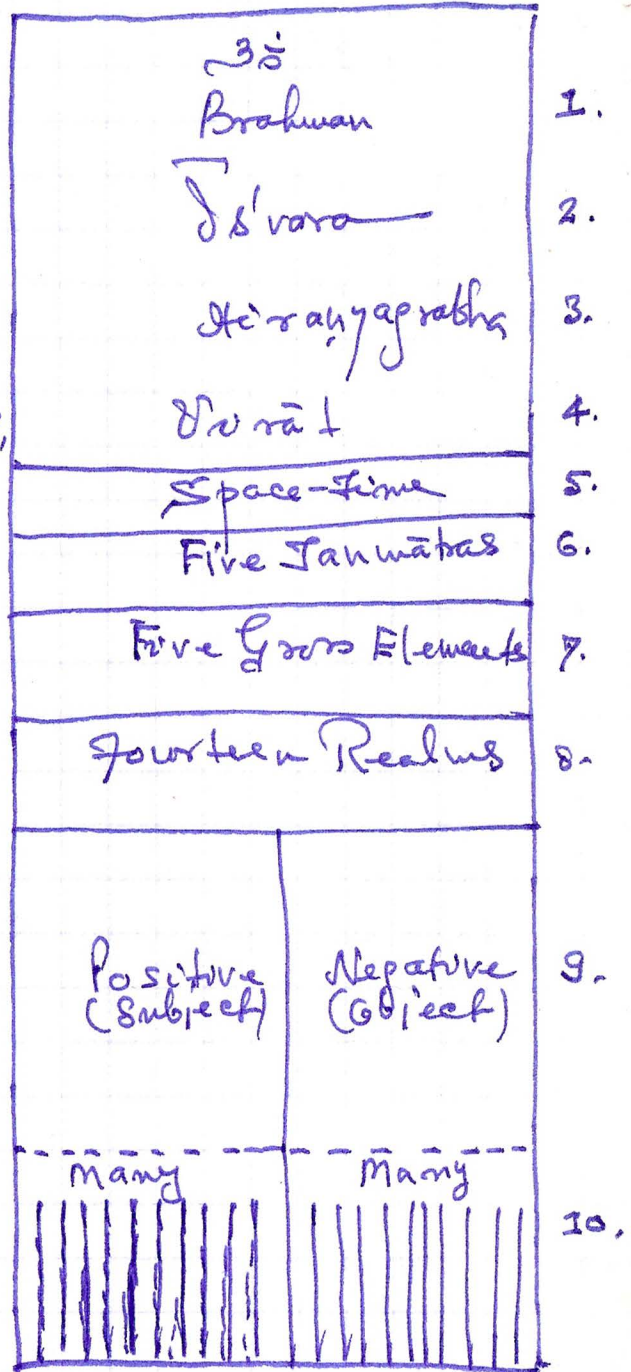 ॐ
Brahman 1.
Īśvara 2.
Hiraṇyagrabha 3.
Virāt 4.
Space-Time 5.
Five Tanmātras 6.
Five Gross Elements 7.
Fourteen Realms 8.
Positive Negative 9.
(Subject) (Object)
Many Many
10.